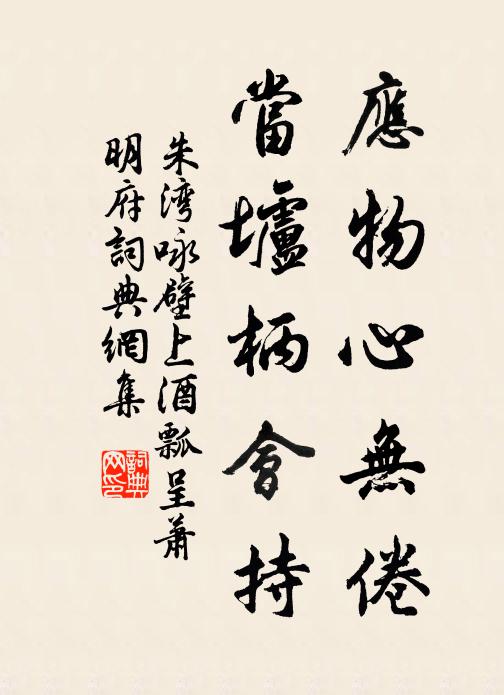 應物心無倦
當壚柄會持
朱湾咏壁上酒瓢呈蕭
明府詞典網集
詞典网印